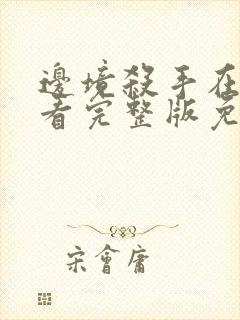 邊境殺手在
看完整版免
宋會庸